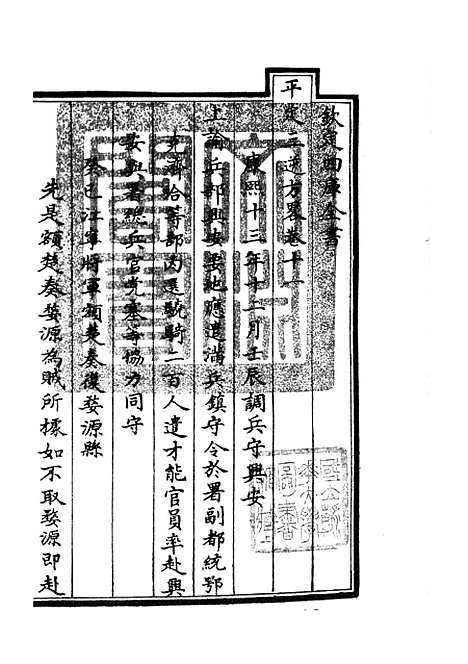 欽定四庫全書
平定三逆方畧卷十一
康熙十三年十二月壬辰調兵守興安
上諭兵部興安要地應遣滿兵鎮守令於署副都統鄂
克濟哈等部内選驍騎二百人遣才能官員率赴興
安與署總兵官
等協力同守
癸巳江寧將軍額楚奏復婺源縣
先是額楚奏婺源為賊所據如不取婺源即赴